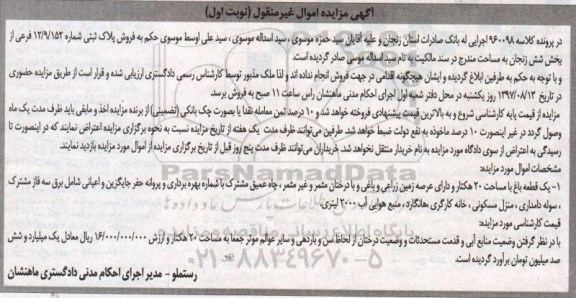 آگهی مزایده اموال غیرمنقول (نوبت اول)
در پرونده کلاسه ۹۶۰۰۹۸ اجرایی له بانک صادرات استان زنجان و علیه آقایان سید حمزه موسوی ، سید اسداله موسوی ، سید علی اوسط موسوی حکم به فروش پلاک ثبتی شماره ۱۲/۹/۱۵۲ فرعی از
بخش شش زنجان به مساحت مندرج در سند مالکیت به نام سید اسداله موسی صادر گردیده است
و با توجه به حکم به طرفین ابلاغ گردیده و ایشان هیچگونه اقدامی در جهت فروش انجام نداده اند و لذا ملک مذبور توسط کارشناس رسمی دادگستری ارزیابی شده و قرار است از طریق مزایده حضوری
در تاریخ ۱۳۹۷/۰۸/۱۳ روز یکشنبه در محل دفتر شعبه اول اجرای احکام مدنی ماهنشان راس ساعت ۱۱ صبح به فروش برسد.
مزایده از قیمت پایه کارشناسی شروع و به بالاترین قیمت پیشنهادی فروخته خواهد شد و ۱۰ درصد ثمن معامله نقدا یا بصورت چک بانکی (تضمینی) از برنده مزایده اخذ و مابقی باید ظرف مدت یک ماه
وصول گردد در غیر اینصورت ۱۰ درصد ماخوذه به نفع دولت ضبط خواهد شد. طرفین می‌توانند ظرف مدت یک هفته از تاریخ مزایده نسبت به نحوه برگزاری مزایده اعتراض نمایند که در اینصورت تا
رسیدگی به اعتراض از سوی دادگاه مورد مزایده به نام خریدار منتقل نخواهد شد. خریداران می‌توانند ظرف مدت پنج روز قبل از تاریخ برگزاری مزایده از اموال مورد مزایده بازدید نمایند.
مشخصات اموال مورد مزایده:
۱- یک قطعه باغ با مساحت ۲۰ هکتار و دارای عرصه زمین زراعی و باغی و با درختان مثمر و غیر مثمر ، چاه عمیق مشترک با شماره بهره برداری و پروانه حفر جایگزین و اعیانی شامل برق سه فاز مشترک
، سوله دامداری ، منزل مسکونی ، خانه کارگری ، هانگارد ، منبع هوایی آب ۲۰۰۰ لیتری.
قیمت کارشناسی مورد مزایده:
با در نظر گرفتن وضعیت منابع آبی و قدمت مستحدثات و وضعیت درختان از لحاظ سن و باردهی و سایر عوامل موثر جمعا به مساحت ۲۰ هکتار و ارزش ۱۶/۰۰۰/۰۰۰/۰۰۰ ریال معادل یک میلیارد و شش
صد میلیون تومان برآورد گردیده است.
رستملو - مدیر اجرای احکام مدنی دادگستری ماهنشان
ParsNamadData
۰۲۱-۸۸۳۴۹۶۷۰-۵